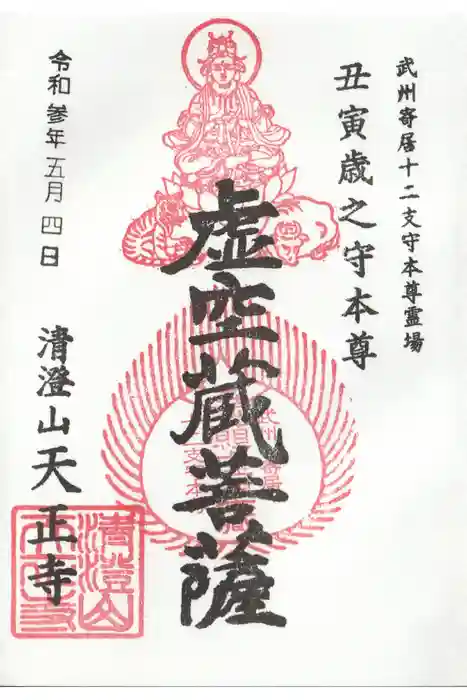 武州寄居十二支守本尊霊場
丑寅歳之守本尊
虚空蔵菩薩
令和参年五月四日
清澄山天正寺
清澄山